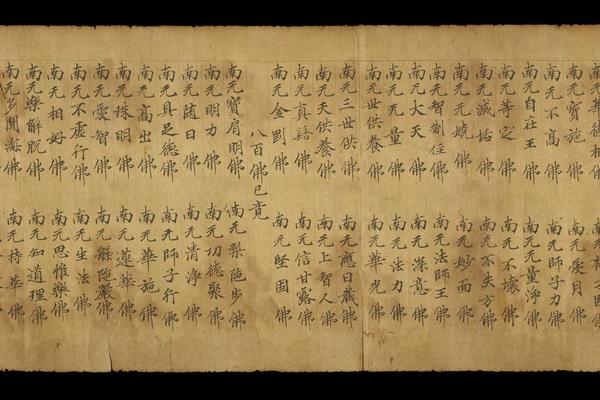 南无寶施佛　南无愛月佛
南无不高佛　南无師子力佛
南无自在王佛　南无无量淨佛
南无等定佛　南无不壞佛
南无滅垢佛　南无不失方佛
南无无嬈佛　南无妙面佛
南无智制住佛　南无法師王佛
南无大天佛　南无深意佛
南无无量佛　南无法力佛
南无世供養佛　南无華光佛
南无三世供佛　南无應日藏佛
南无天供養佛　南无上智人佛
南无真髻佛　南无信甘露佛
南无金剛佛　南无堅固佛
八百佛已竟
南无寶肩明佛　南无梨陁步佛
南无明力佛　南无功德聚佛
南无随日佛　南无清淨佛
南无具足德佛　南无師子行佛
南无高出佛　南无華施佛
南无珠明佛　南无蓮華佛
南无愛智佛　南无槃陁嚴佛
南无不虛行佛　南无生法佛
南无相好佛　南无思惟樂佛
南无樂解脫佛　南无知道理佛
南无多聞海佛　南无持華佛